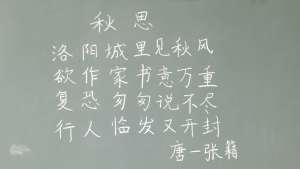 秋思
洛阳城里见秋风
欲作家书意万重
复恐匆匆说不尽
行人临发又开封
唐一张籍